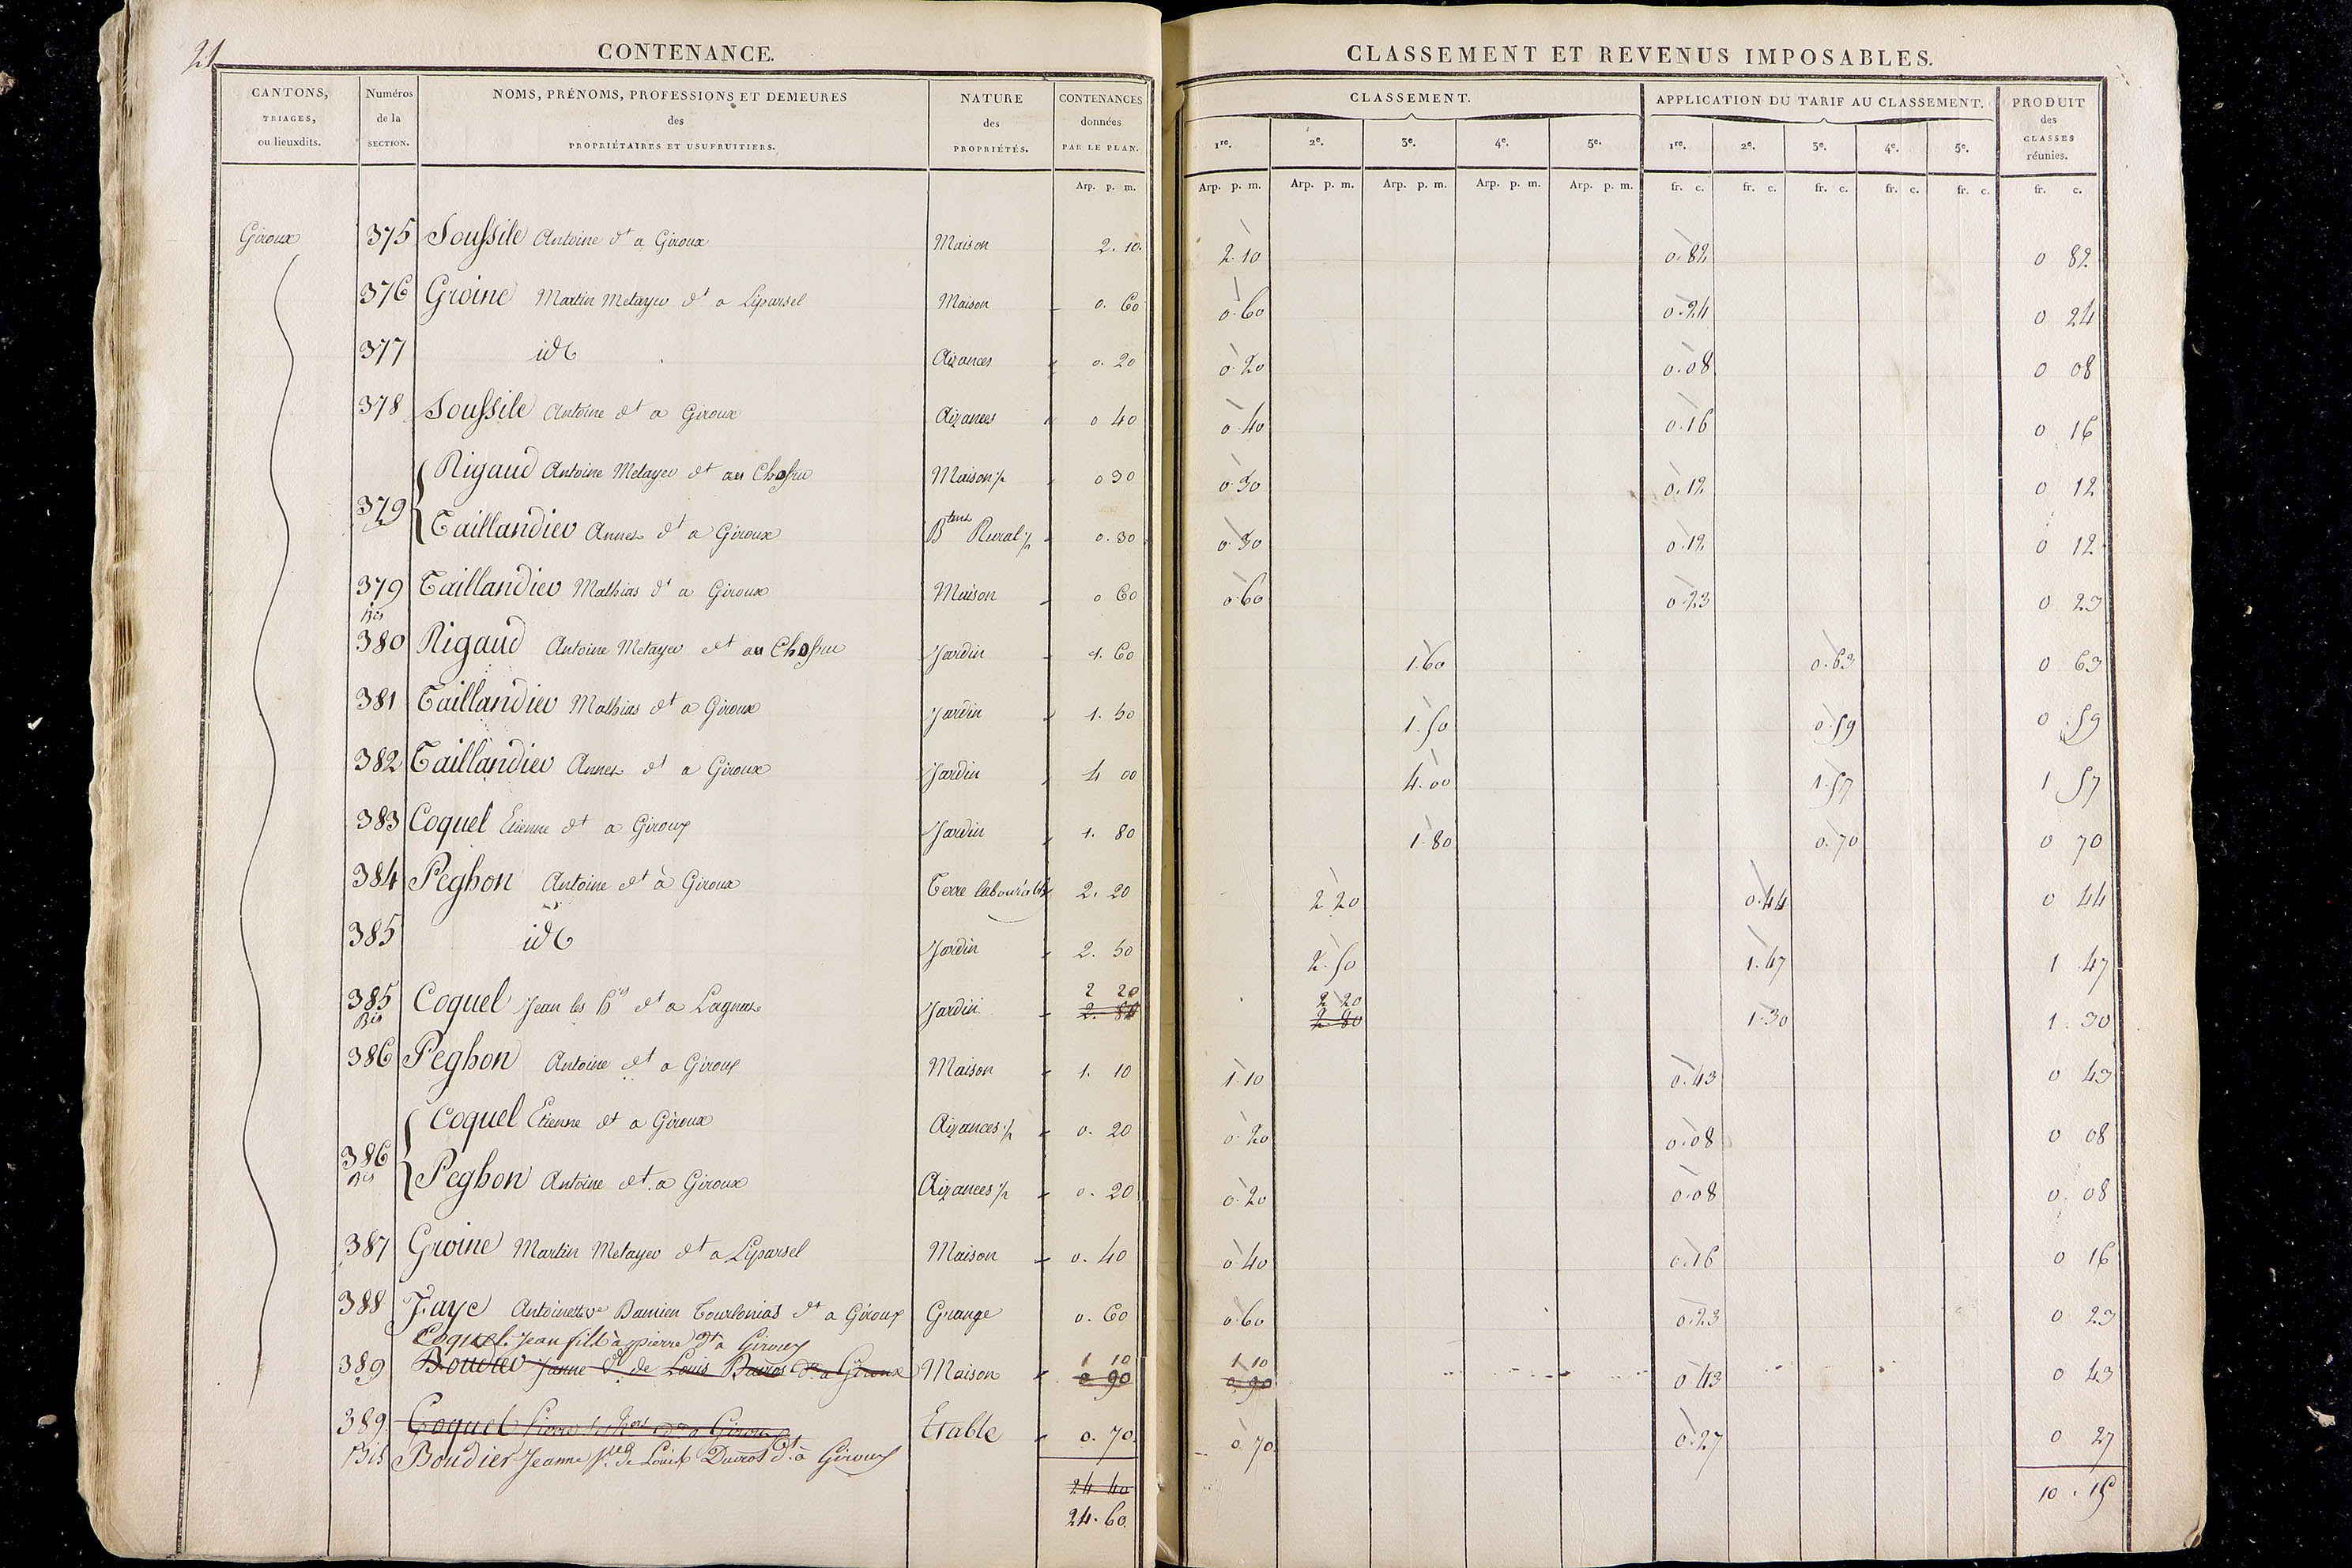 21
CONTENANCE.
CANTONS, TRIAGES, ou lieuxdits. Numéros de la SECTION. NOMS, PRÉNOMS, PROFESSIONS ET DEMEURES des PROPRIÉTAIRES ET USUFRUITIERS. NATURE des PROPRIÉTÉS. CONTENANCES données PAR LE PLAN.
Arp. p. m.
CLASSEMENT ET REVENUS IMPOSABLES.
CLASSEMENT. APPLICATION DU TARIF AU CLASSEMENT. PRODUIT des CLASSES réunies.
1re. 2e. 3e. 4e. 5e. 1re. 2e. 3e. 4e. 5e.
Arp. p. m. Arp. p. m. Arp. p. m. Arp. p. m. Arp. p. m. fr. c. fr. c. fr. c. fr. c. fr. c. fr. c.
Giroux 375 Soussile Antoine dt a Giroux Maison 2. 10. 2. 10 0. 82 0 82
376 Groine Martin Metayer dt a Liparsel Maison 0. 60 0. 60 0. 24 0 24
377 id Aizances 0. 20 0. 20 0. 08 0 08
378 Soussile Antoine dt a Giroux Aizances 0 40 0. 40 0. 16 0 16
379 Rigaud Antoine Metayer dt au Maison 0 30 0. 30 0. 12 0 12
Taillandier Annet dt a Giroux Btens Rural 0. 30 0. 30 0. 12 0 12
379 Bis Taillandier Mathias dt a Giroux Maison 0 60 0. 60 0. 23 0 23
380 Rigaud Antoine Metayer dt au Jardin 1. 60 1. 60 0. 63 0 63
381 Taillandier Mathias dt a Giroux Jardin 1. 50 1. 50 0. 59 0 59
382 Taillandier Annet dt a Giroux Jardin 4 00 4. 00 1. 57 1 57
383 Coquel Etienne dt a Giroux Jardin 1. 80 1. 80 0. 70 0 70
384 Peghon Antoine dt à Giroux Terre labourable 2. 20 2. 20 0. 44 0 44
385 id Jardin 2. 50 2. 50 1. 47 1 47
385 Bis Coquel Jean les hers dt a Jardin 2 20 2. 80 2 20 2. 80 1. 30 1. 30
386 Peghon Antoine dt a Giroux Maison 1. 10 1. 10 0. 43 0 43
386 Bis Coquel Etienne dt a Giroux Aizances 0. 20 0. 20 0. 08 0 08
Peghon Antoine dt a Giroux Aizances 0. 20 0. 20 0. 08 0. 08
387 Groine Martin Metayer dt a Liparsel Maison 0. 40 0. 40 0. 16 0 16
388 Faye Antoinette ve Damien Tourlonias dt a Giroux Grange 0. 60 0. 60 0. 23 0 23
Coquel Jean fils à pierre dt a Giroux
389 Boudier Janne de Louis dt a Giroux Maison 1 10 0 90 1. 10 0. 90 0. 43 0 43
389 Bis Coquel Pierre dt a Giroux Etable 0. 70 0. 70 0. 27 0 27
Boudier Jeanne de Louis dt à Giroux
24. 40
24. 60
10. 15